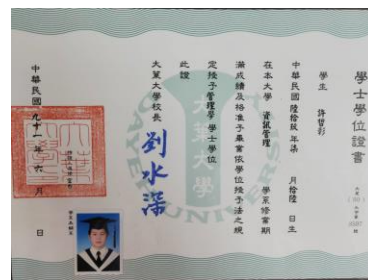 學士學位證書
學生 許哲彰
中華民國陸拾玖年柒月拾陸日生
在本大學 資訊管理 學系修業期
滿成績及格准予畢業依學位授予法之規
定授予管理學學士學位
此證
大葉大學校長 劉水深
中華民國九十一年六月 日
大葉大學
DAYEH UNIVERSITY